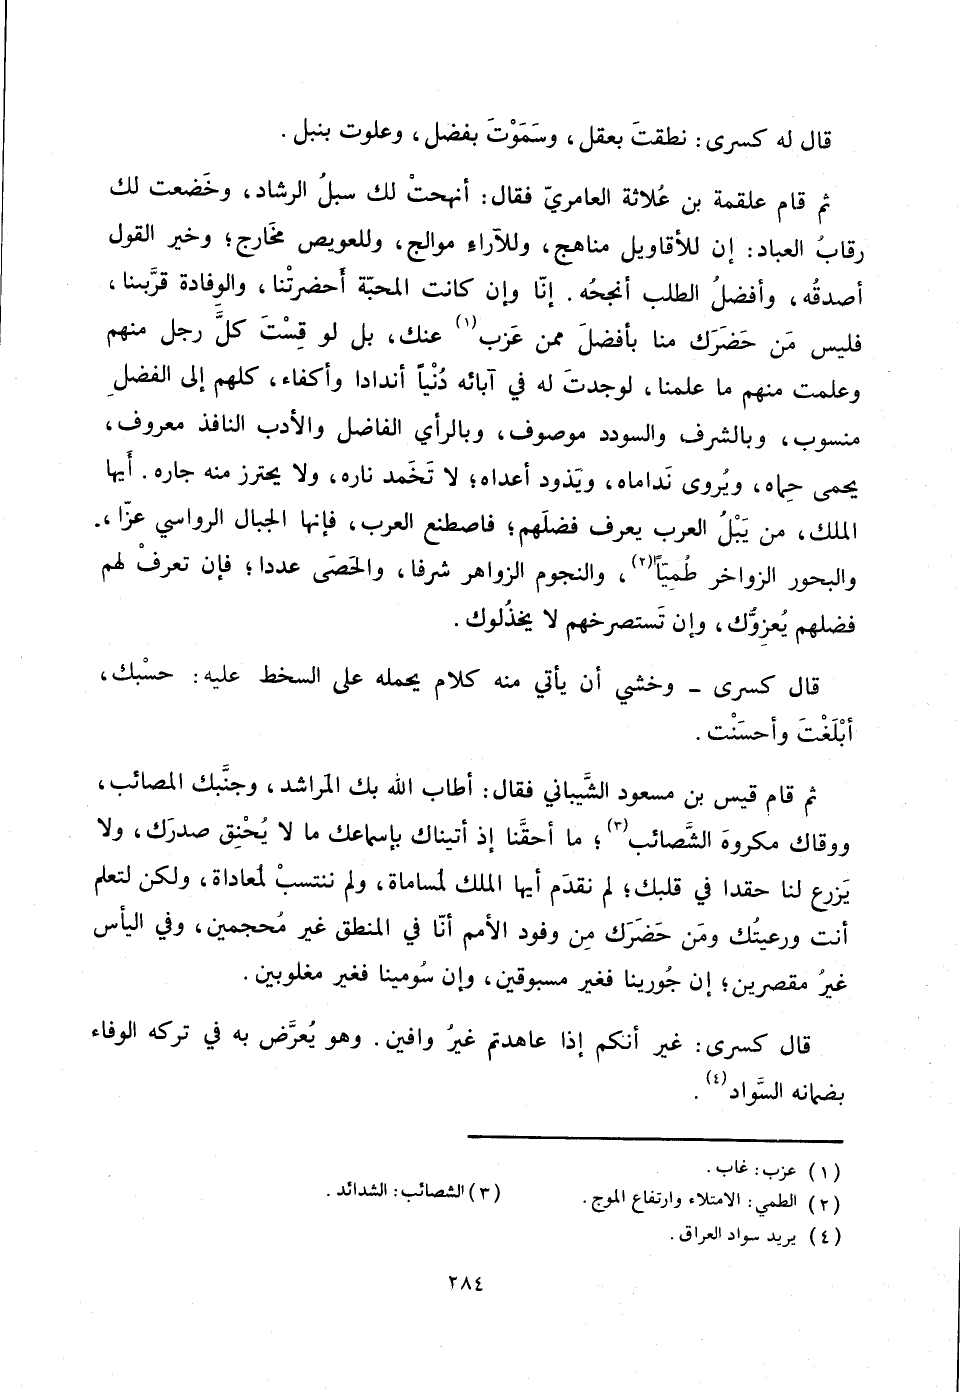 قال له كسرى: نطقتَ بعقل، وسَمَوْتَ بفضل، وعلوت بنبل.
ثم قام علقمة بن عُلاثة العامريّ فقال: أنهجتْ لك سبلُ الرشاد، وخَضعت لك
رقابُ العباد: إن للأقاويل مناهج، وللآراءِ موالج، وللعويص مخَارج؛ وخير القول
أصدقُه، وأفضلُ الطلب أنجحُه. إنّا وإن كانت المحبّة أحضرتْنا، والوفادة قرَّبتنا،
فليس مَن حَضَرَك منا بأفضلَ ممن عَزب(١) عنك، بل لو قِسْتَ كلَّ رجل منهم
وعلمت منهم ما علمنا، لوجدتَ له في آبائه دُنْياً أندادا وأكفاء، كلهم إلى الفضلِ
منسوب، وبالشرف والسودد موصوف، وبالرأي الفاضل والأدب النافذ معروف،
يحمى حِماه، ويُروى نَداماه، ويَذود أعداه؛ لا تَخَمد ناره، ولا يحترز منه جاره. أيها
الملك، من يَبْلُ العرب يعرف فضلَهم؛ فاصطنع العرب، فإنها الجبال الرواسي عزّا،
والبحور الزواخر طُمِيّاً(٢)، والنجوم الزواهر شرفا، والحَصَى عددا؛ فإن تعرفْ لهم
فضلهم يُعزِوُّك، وإن تَستصرخهم لا يخذُلوك.
قال كسرى ـ وخشي أن يأتي منه كلام يحمله على السخط عليه: حسْبك،
أبْلَغْتَ وأحسَنْت.
ثم قام قيس بن مسعود الشَّيباني فقال: أطاب الله بك المَراشد، وجنَّبك المصائب،
ووقاك مكروهَ الشَّصائب(٣)؛ ما أحقَّنا إذ أتيناك بإسماعك ما لا يُحْنِق صدرَك، ولا
يَزرع لنا حقدا في قلبك؛ لم نقدَم أيها الملك لمساماة، ولم ننتسبْ لمعاداة، ولكن لتعلم
أنت ورعيتُك ومَن حَضَرَك مِن وفود الأمم أنّا في المنطق غير مُحجمين، وفي اليأس
غيرُ مقصرين؛ إن جُورينا فغير مسبوقين، وإن سُومينا فغير مغلوبين.
قال كسرى: غير أنكم إذا عاهدتم غيرُ وافين. وهو يُعرَّض به في تركه الوفاء
بضمانه السَّواد(٤).
(١) عزب: غاب.
(٢) الطمي: الامتلاء وارتفاع الموج.
(٣) الشصائب: الشدائد.
(٤) يريد سواد العراق.
٢٨٤